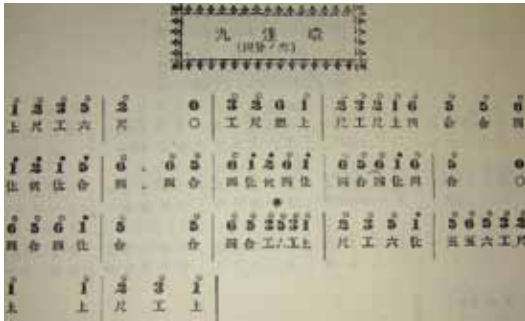 九連環
(四分ノ六)
1 2 3 5 | 2 0 | 3 2 6 1 | 2 3 2 1 6 | 5 5 6
上 尺 工 六 尺 ○ 工 尺 四 上 尺 工 尺 上 四 合 合 四
1 2 1 5 | 6 . 6 5 | 6 1 2 6 1 | 6 5 6 1 6 | 5 0
仩 伬 仩 合 四 . 四 合 四 仩 伬 四 仩 四 合 四 仩 四 合 ○
6 5 6 1 | 5 5 | 6 5 3 5 3 1 | 2 3 5 1 | 5 6 5 3 2
四 合 四 仩 合 合 四 合 工 六 工 上 尺 工 六 仩 五 五 六 工 尺
1 1 | 2 3 1
上 上 尺 工 上